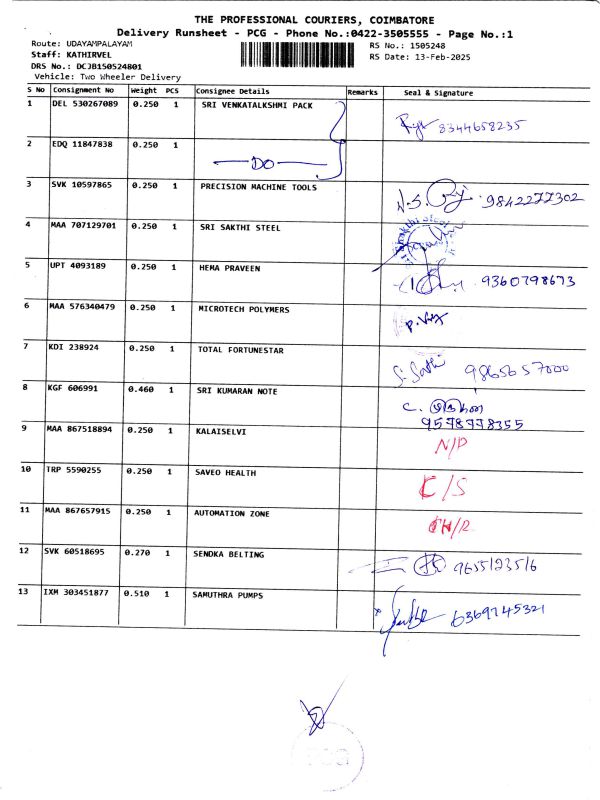 THE PROFESSIONAL COURIERS, COIMBATORE
Delivery Runsheet - PCG - Phone No.:0422-3505555 - Page No.:1
Route: UDAYAMPALAYAM RS No.: 1505248
Staff: KATHIRVEL RS Date: 13-Feb-2025
DRS No.: DCJB150524801
Vehicle: Two Wheeler Delivery
S No Consignment No Weight PCS Consignee Details Remarks Seal & Signature
1 DEL 530267089 0.250 1 SRI VENKATALKSHMI PACK 8344658235
2 EDQ 11847838 0.250 1 DO
3 SVK 10597865 0.250 1 PRECISION MACHINE TOOLS 9842277302
4 MAA 707129701 0.250 1 SRI SAKTHI STEEL
5 UPT 4093189 0.250 1 HEMA PRAVEEN 9360798673
6 MAA 576340479 0.250 1 MICROTECH POLYMERS
7 KDI 238924 0.250 1 TOTAL FORTUNESTAR 9865657000
8 KGF 606991 0.460 1 SRI KUMARAN NOTE C.
9578778355
9 MAA 867518894 0.250 1 KALAISELVI N/P
10 TRP 5590255 0.250 1 SAVEO HEALTH C/S
11 MAA 867657915 0.250 1 AUTOMATION ZONE
12 SVK 60518695 0.270 1 SENDKA BELTING 9655123516
13 IXM 303451877 0.510 1 SAMUTHRA PUMPS 6369745321